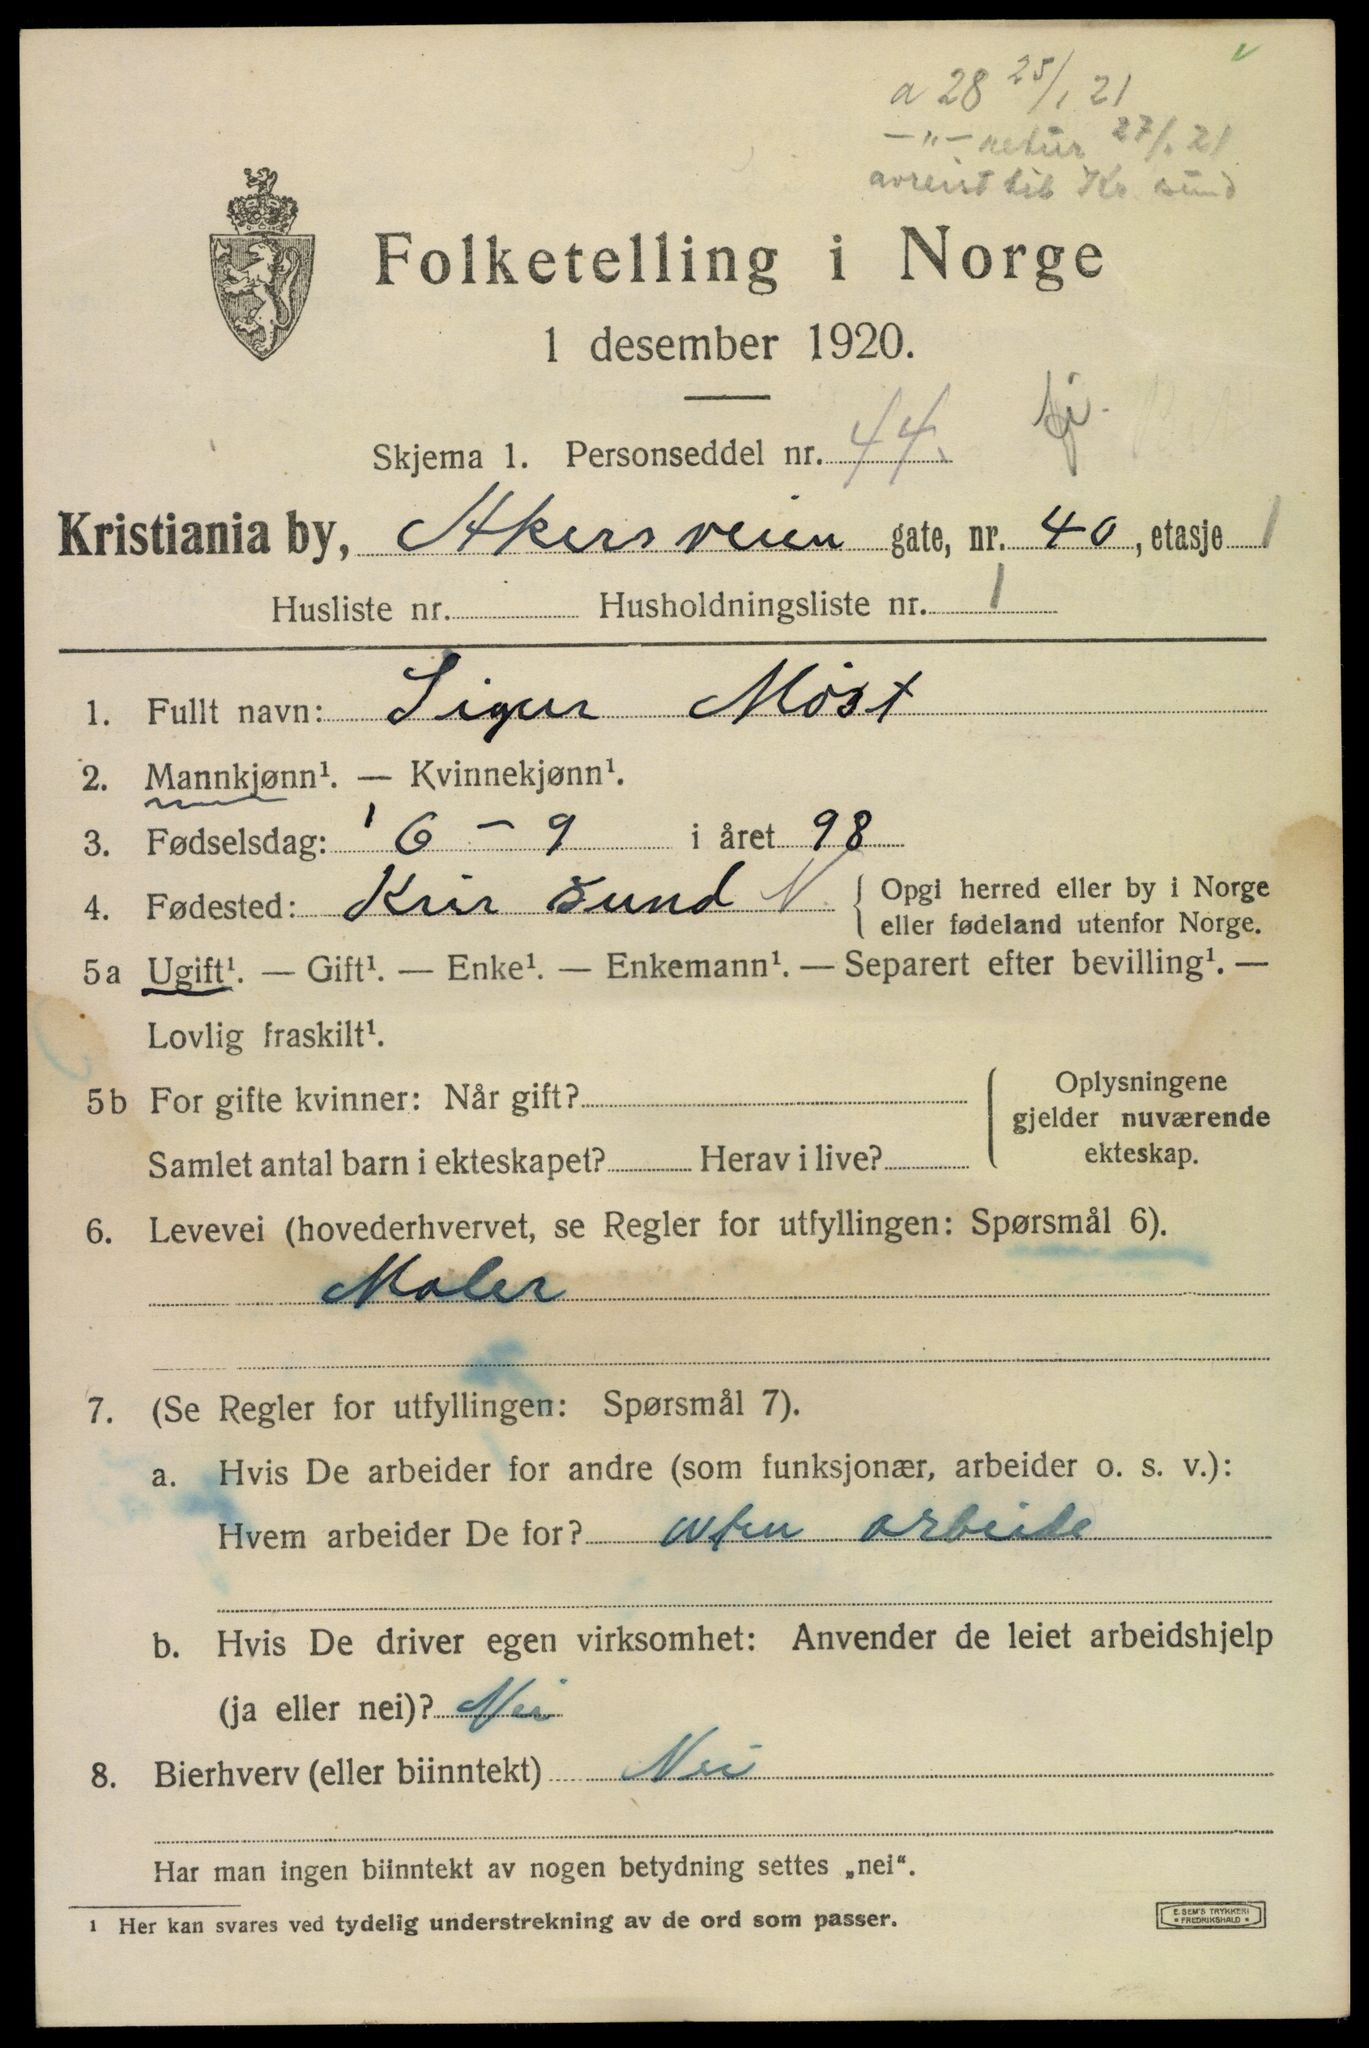 a 28 25/1 21
—„— retur 27/1 21
avreist til Kr. sund
Folketelling i Norge
1 desember 1920.
Skjema 1. Personseddel nr. 44.
Kristiania by, Akersveien gate, nr. 40, etasje 1
Husliste nr. Husholdningsliste nr. 1
1. Fullt navn: Sigur Möst
2. Mannkjønn¹. — Kvinnekjønn¹.
3. Fødselsdag: 6 – 9 i året 98
4. Fødested: Kris sund N. { Opgi herred eller by i Norge
eller fødeland utenfor Norge.
5a Ugift¹. — Gift¹. — Enke¹. — Enkemann¹. — Separert efter bevilling¹. —
Lovlig fraskilt¹.
5b For gifte kvinner: Når gift?
Samlet antal barn i ekteskapet? Herav i live?
Oplysningene
gjelder nuværende
ekteskap.
6. Levevei (hovederhvervet, se Regler for utfyllingen: Spørsmål 6).
Maler
7. (Se Regler for utfyllingen: Spørsmål 7).
a. Hvis De arbeider for andre (som funksjonær, arbeider o. s. v.):
Hvem arbeider De for? uten arbeide
b. Hvis De driver egen virksomhet: Anvender de leiet arbeidshjelp
(ja eller nei)? Nei
8. Bierhverv (eller biinntekt) Nei
Har man ingen biinntekt av nogen betydning settes „nei“.
¹ Her kan svares ved tydelig understrekning av de ord som passer.
E. SEM'S TRYKKERI
* FREDRIKSHALD *